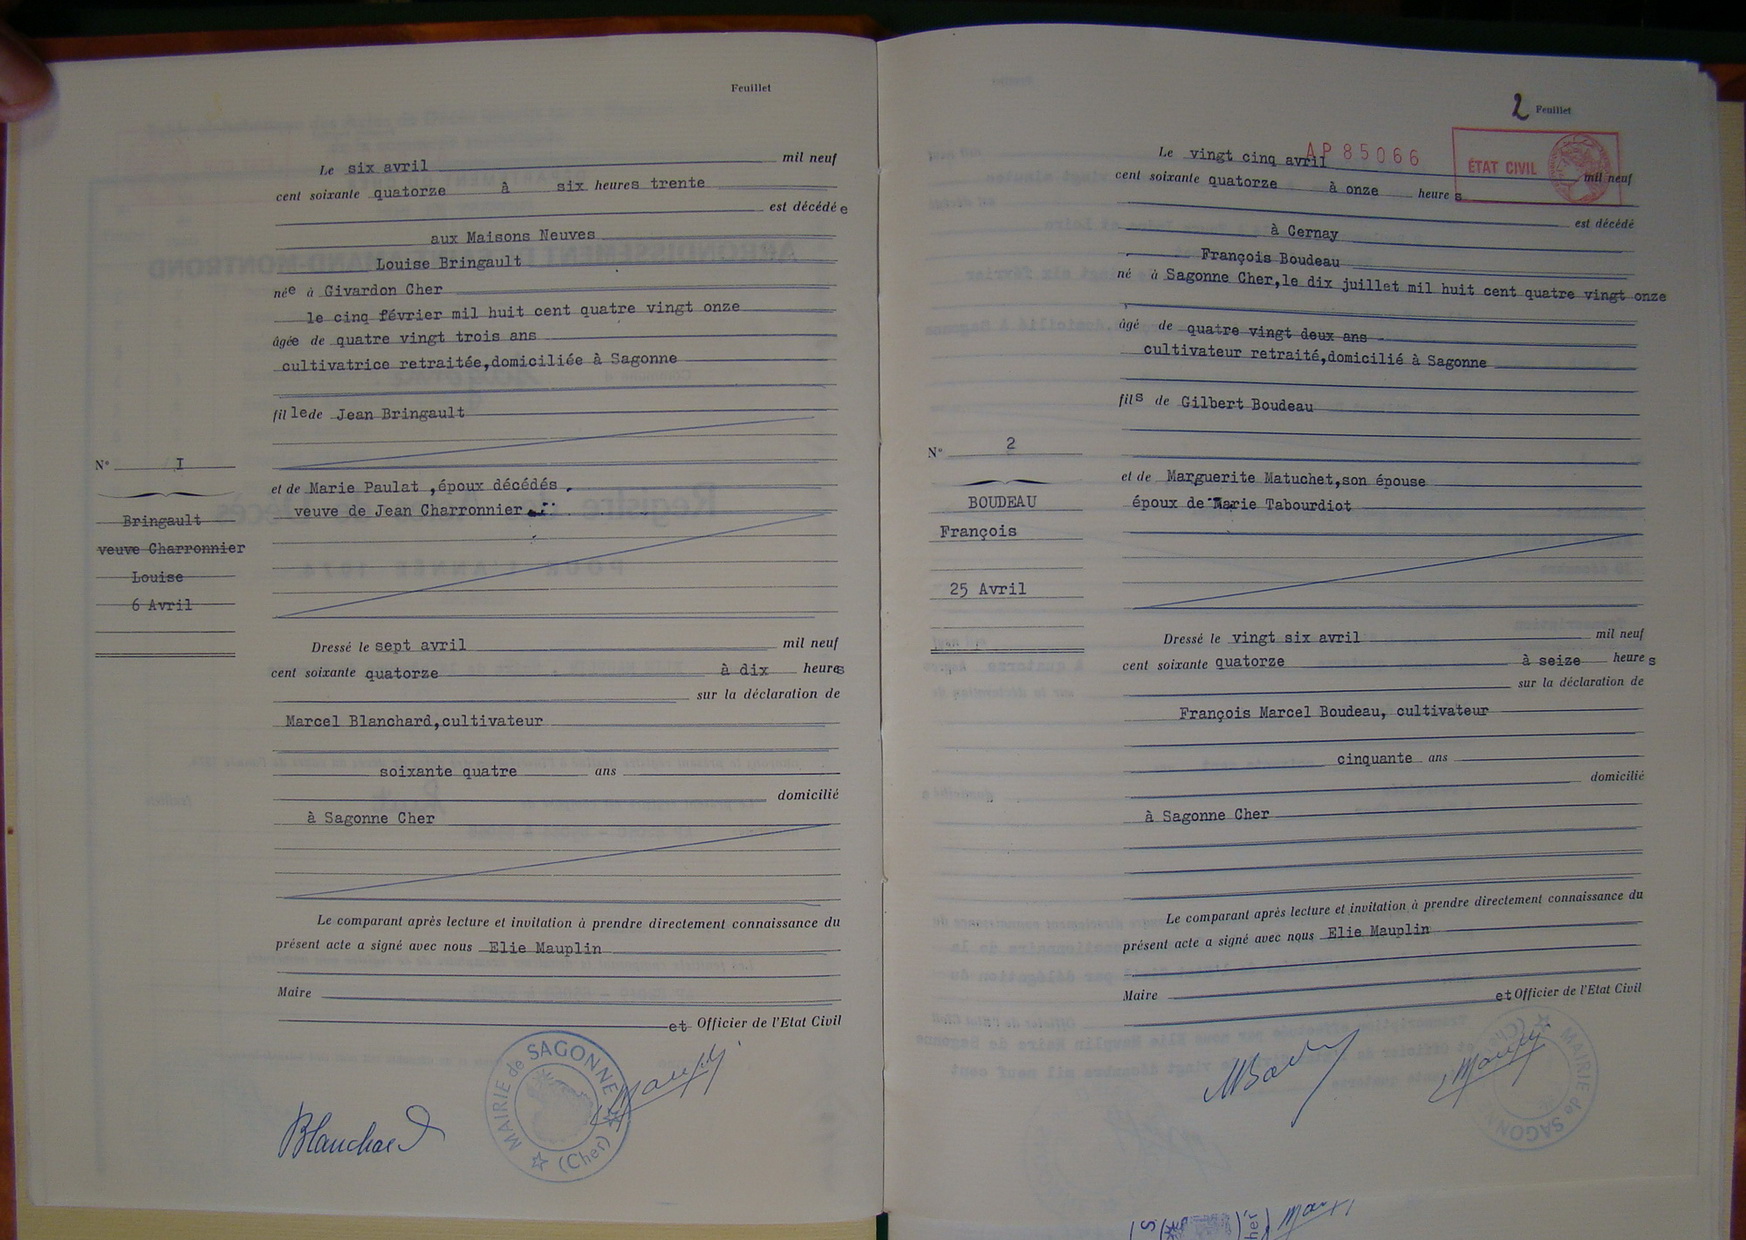 Feuillet
Le six avril mil neuf
cent soixante quatorze à six heures trente
est décédée
aux Maisons Neuves
Louise Bringault
née à Givardon Cher
le cinq février mil huit cent quatre vingt onze
âgée de quatre vingt trois ans
cultivatrice retraitée,domiciliée à Sagonne
fillede Jean Bringault
N° I
Bringault
veuve Charronnier
Louise
6 Avril
et de Marie Paulat ,époux décédés .
veuve de Jean Charronnier
Dressé le sept avril mil neuf
cent soixante quatorze à dix heures
sur la déclaration de
Marcel Blanchard,cultivateur
soixante quatre ans
domicilié
à Sagonne Cher
Le comparant après lecture et invitation à prendre directement connaissance du
présent acte a signé avec nous Elie Mauplin
Maire
et Officier de l'Etat Civil
Blanchard
MAIRIE de SAGONNE
(Cher)
2 Feuillet
AP85066
ÉTAT CIVIL
Le vingt cinq avril mil neuf
cent soixante quatorze à onze heures
est décédé
à Cernay
François Boudeau
né à Sagonne Cher,le dix juillet mil huit cent quatre vingt onze
âgé de quatre vingt deux ans
cultivateur retraité,domicilié à Sagonne
fils de Gilbert Boudeau
N° 2
BOUDEAU
François
25 Avril
et de Marguerite Matuchet,son épouse
époux de Marie Tabourdiot
Dressé le vingt six avril mil neuf
cent soixante quatorze à seize heures
sur la déclaration de
François Marcel Boudeau, cultivateur
cinquante ans
domicilié
à Sagonne Cher
Le comparant après lecture et invitation à prendre directement connaissance du
présent acte a signé avec nous Elie Mauplin
Maire
et Officier de l'Etat Civil
MAIRIE de SAGONN